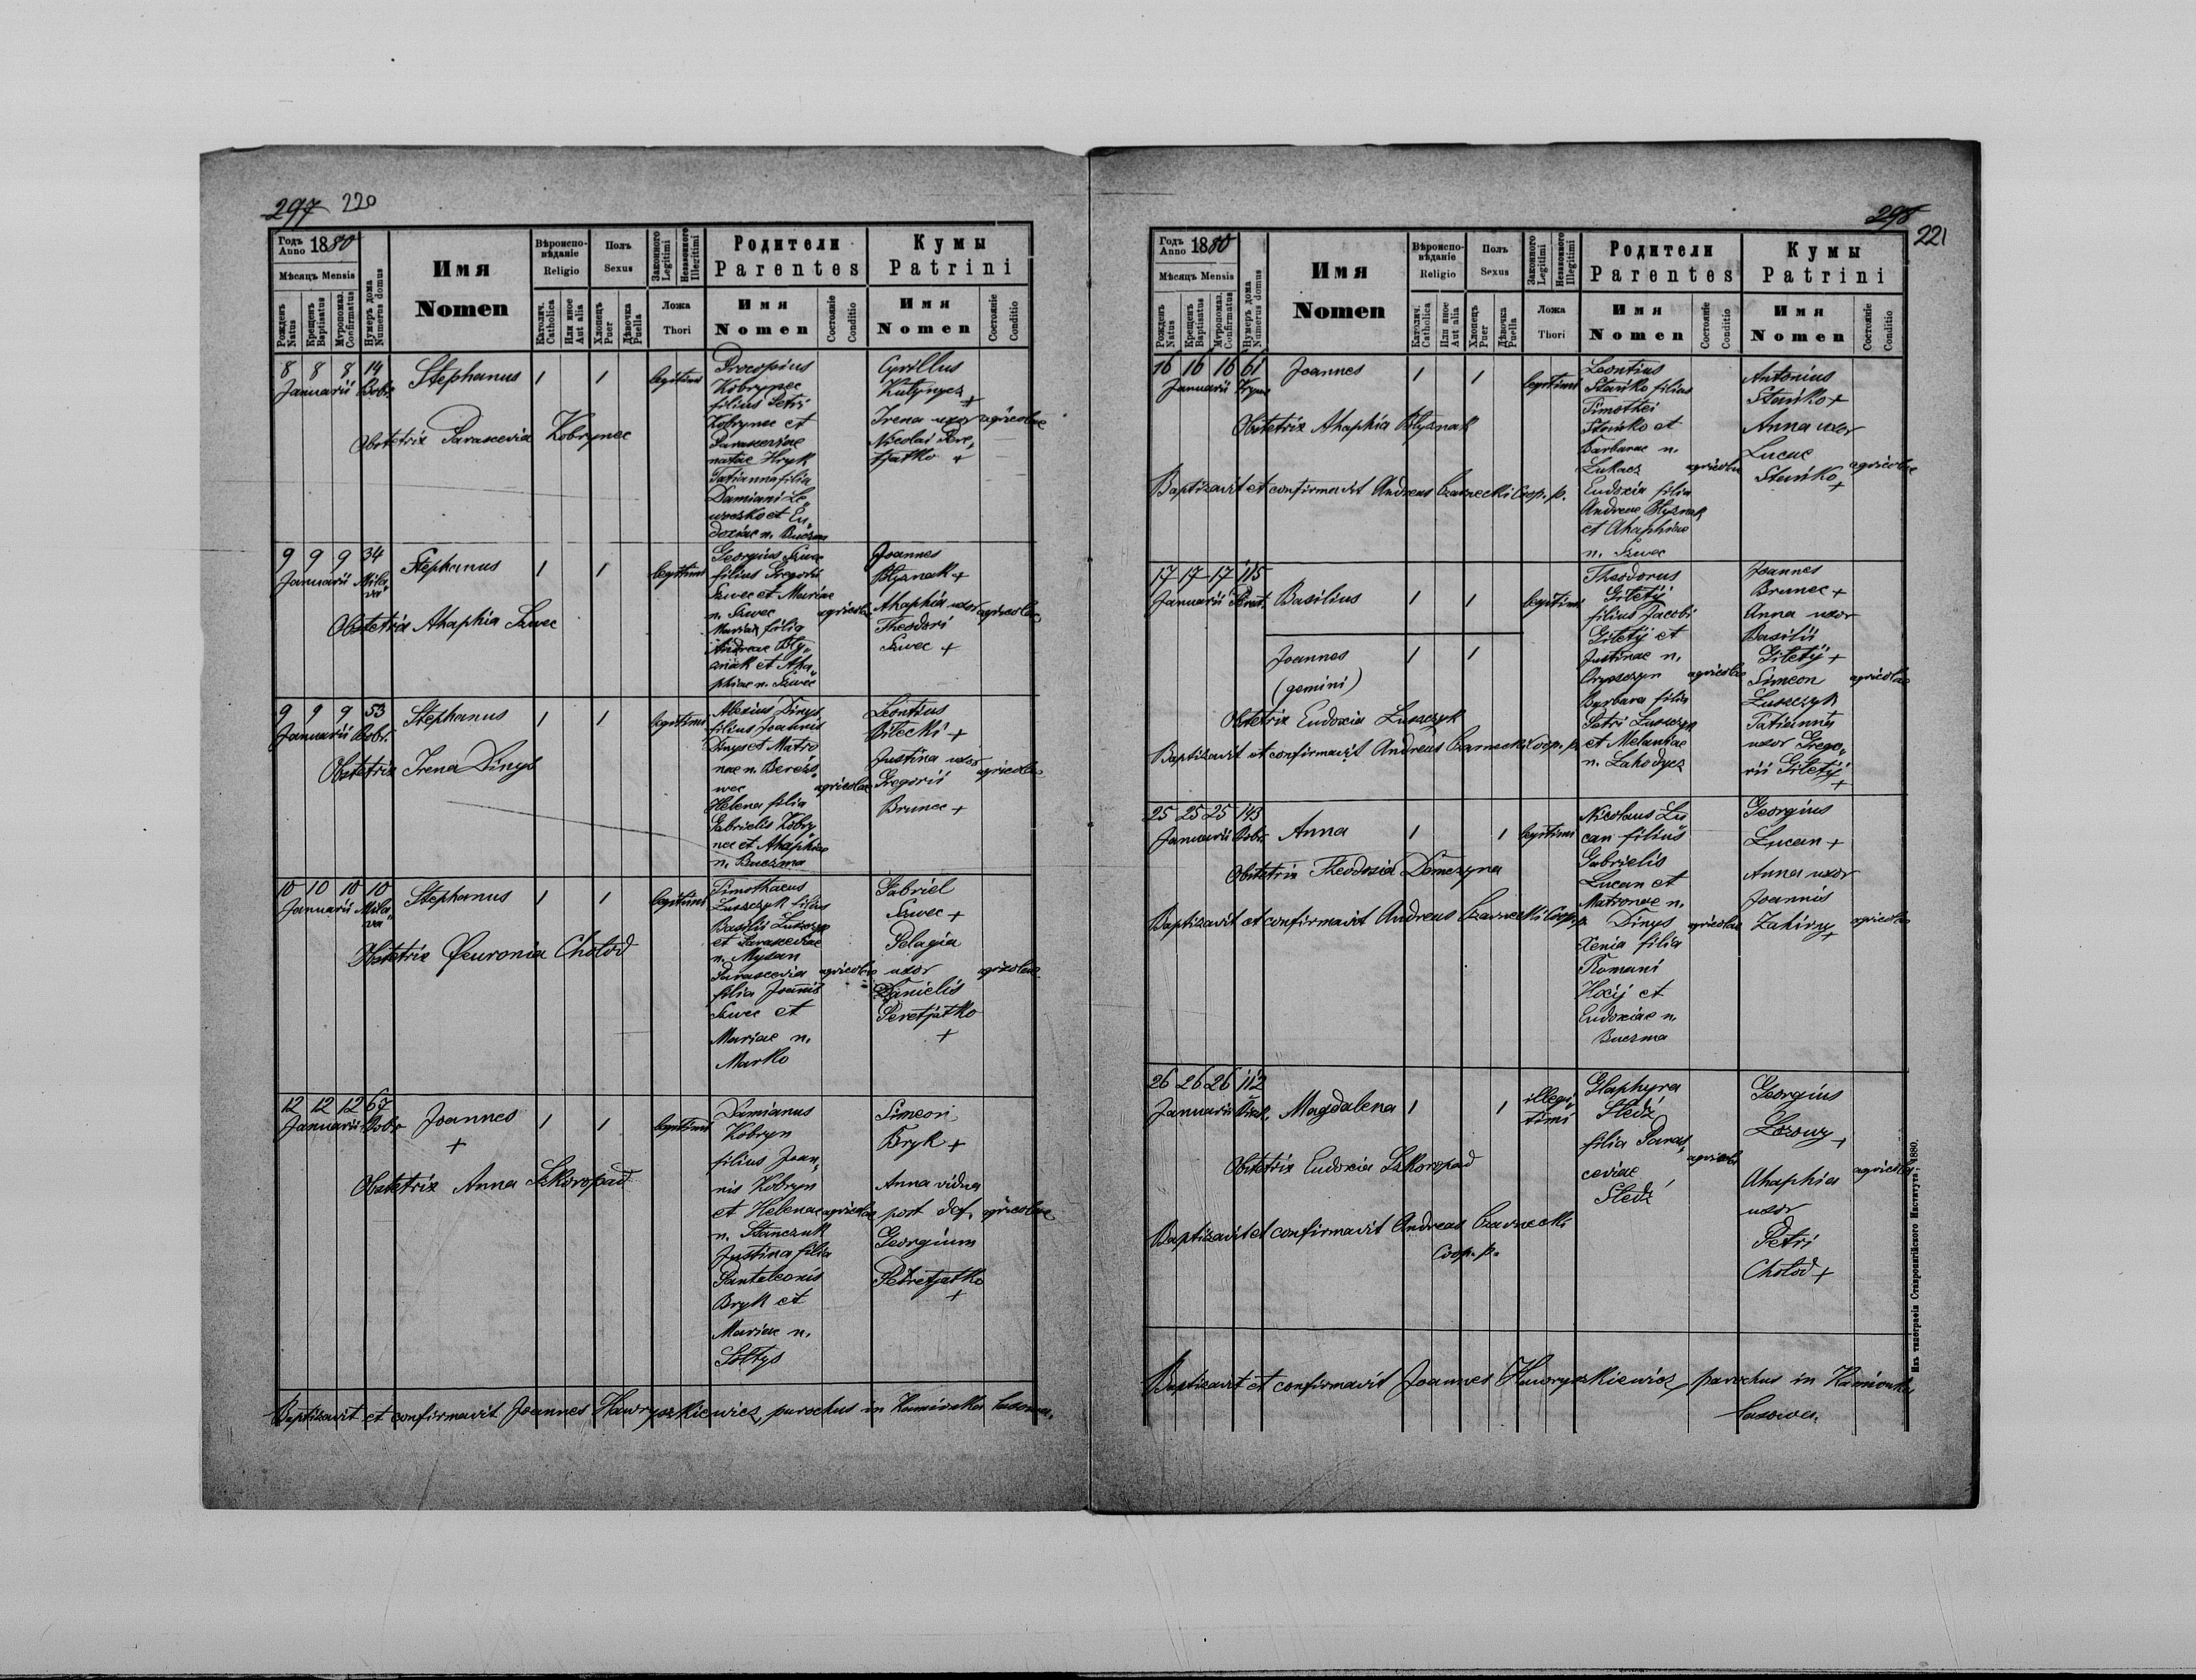 297 220
Годъ Anno 1880
Мѣсяцъ Mensis
Рожденъ Natus
Крещенъ Baptisatus
Мѵропомаз. Confirmatus
Нумеръ дома Numerus domus
Имя
Nomen
Вѣроиспо-
вѣданіе
Religio
Католич. Catholica
Или иное Aut alia
Полъ
Sexus
Хлопецъ Puer
Дѣвочка Puella
Законного Legitimi
Незаконного Illegitimi
Ложа
Thori
Родители
Parentes
Имя
Nomen
Состояніе Conditio
Кумы
Patrini
Имя
Nomen
Состояніе Conditio
8 8 8 14
Januarii Dobr.
Stephanus 1 1 legitimi
Obstetrix Parascevia Kobrynec
Procopius
Kobrynec
filius Petri
Kobrynec et
Parasceviae
natae Hryk
Tatianna filia
Damiani Le
woczko et Eu
doxiae n. Buczma
Cyrillus
+
Irena uxor agricolae
Nicolai Pere
tjatko +
9 9 9 34
Januarii Mila
va
Stephanus 1 1 legitimi
Obstetrix Ahaphia Szwec
Georgius Szwec
filius Gregorii
Szwec et Mariae
n. Szwec agricolae
Maria filia
Andreae Bly
znak et Aha
phiae n. Szwec
Joannes
Blyznak +
Ahaphia uxor agricolae
Theodori
Szwec +
9 9 9 53
Januarii Dobr.
Stephanus 1 1 legitimi
Obstetrix Irena Dinys
Alexius Dinys
filius Joannis
Dinys et Matro
nae n. Berezo
wec agricolae
Helena filia
Gabrielis Kobry
nec et Ahaphiae
n. Buczma
Leontius
Bilecki +
Justina uxor
Gregorii agricolae
Brunec +
10 10 10 10
Januarii Mila
va
Stephanus 1 1 legitimi
Obstetrix Feuronia Cholod
Timothaeus
Luszczyk filius
Basilii Luszczyk
et Parasceviae
n. Mysan
Parascevia agricolae
filia Joannis
Szwec et
Mariae n.
Marko
Gabriel
Szwec +
Pelagia
uxor agricolae
Danielis
Peretjatko
+
12 12 12 67
Januarii Dobr
Joannes 1 1 legitimi
+
Obstetrix Anna Szkoropad
Damianus
Kobryn
filius Joan
nis Kobryn
et Helenae agricolae
n. Stanczuk
Justina filia
Panteleonis
Bryk et
Mariae n.
Soltys
Simeon
Bryk +
Anna vidua
post def. agricolae
Georgium
Peretjatko
+
Baptizavit et confirmavit Joannes Hawryszkiewicz, parochus in Kamionka lasowa.
298
221
Годъ Anno 1880
Мѣсяцъ Mensis
Рожденъ Natus
Крещенъ Baptisatus
Мѵропомаз. Confirmatus
Нумеръ дома Numerus domus
Имя
Nomen
Вѣроиспо-
вѣданіе
Religio
Католич. Catholica
Или иное Aut alia
Полъ
Sexus
Хлопецъ Puer
Дѣвочка Puella
Законного Legitimi
Незаконного Illegitimi
Ложа
Thori
Родители
Parentes
Имя
Nomen
Состояніе Conditio
Кумы
Patrini
Имя
Nomen
Состояніе Conditio
16 16 16 61
Januarii
Joannes 1 1 legitimi
Obstetrix Ahaphia Blyznak
Baptizavit et confirmavit Andreas Czarnecki Coop. p.
Leontius
Stańko filius
Timothei
Stańko et
Barbarae n.
Lukacz agricolae
Eudoxia filia
Andreae Blyznak
et Ahaphiae
n. Szwec
Antonius
Stańko +
Anna uxor
Lucae
Stańko agricolae
+
17 17 17 115
Januarii
Basilius 1 1 legitimi
Joannes 1 1
(gemini)
Obstetrix Eudoxia Luszczyk
Baptizavit et confirmavit Andreas Czarnecki Coop. p.
Theodorus
Giletÿ
filius Jacobi
Giletÿ et
Justinae n.
agricolae
Barbara filia
Petri Luszczyk
et Melaniae
n. Lahodycz
Joannes
Brunec +
Anna uxor
Basilii
Giletÿ +
Simeon agricolae
Luszczyk
Tatianna
uxor Grego
rii Giletÿ
+
25 25 25 143
Januarii Dobr.
Anna 1 1 legitimi
Obstetrix Theodosia Domczyna
Baptizavit et confirmavit Andreas Czarnecki Coop. p.
Nicolaus Lu
can filius
Gabrielis
Lucan et
Matronae n.
Dinys agricolae
Xenia filia
Romani
Hocij et
Eudoxiae n.
Buczma
Georgius
Lucan +
Anna uxor
Joannis
Zahirny agricolae
+
26 26 26 112
Januarii
Magdalena 1 1 illegi
timi
Obstetrix Eudoxia Szkoropad
Baptizavit et confirmavit Andreas Czarnecki
Coop. p.
Glaphyra
Śledź
filia Paras
ceviae agricolae
Śledź
Georgius
Lozowy
+
Ahaphia agricolae
uxor
Petri
Cholod +
Baptizavit et confirmavit Joannes Hawryszkiewicz, parochus in Kamionka
lasowa.
Изъ типографіи Ставропигійского Института, 1880.